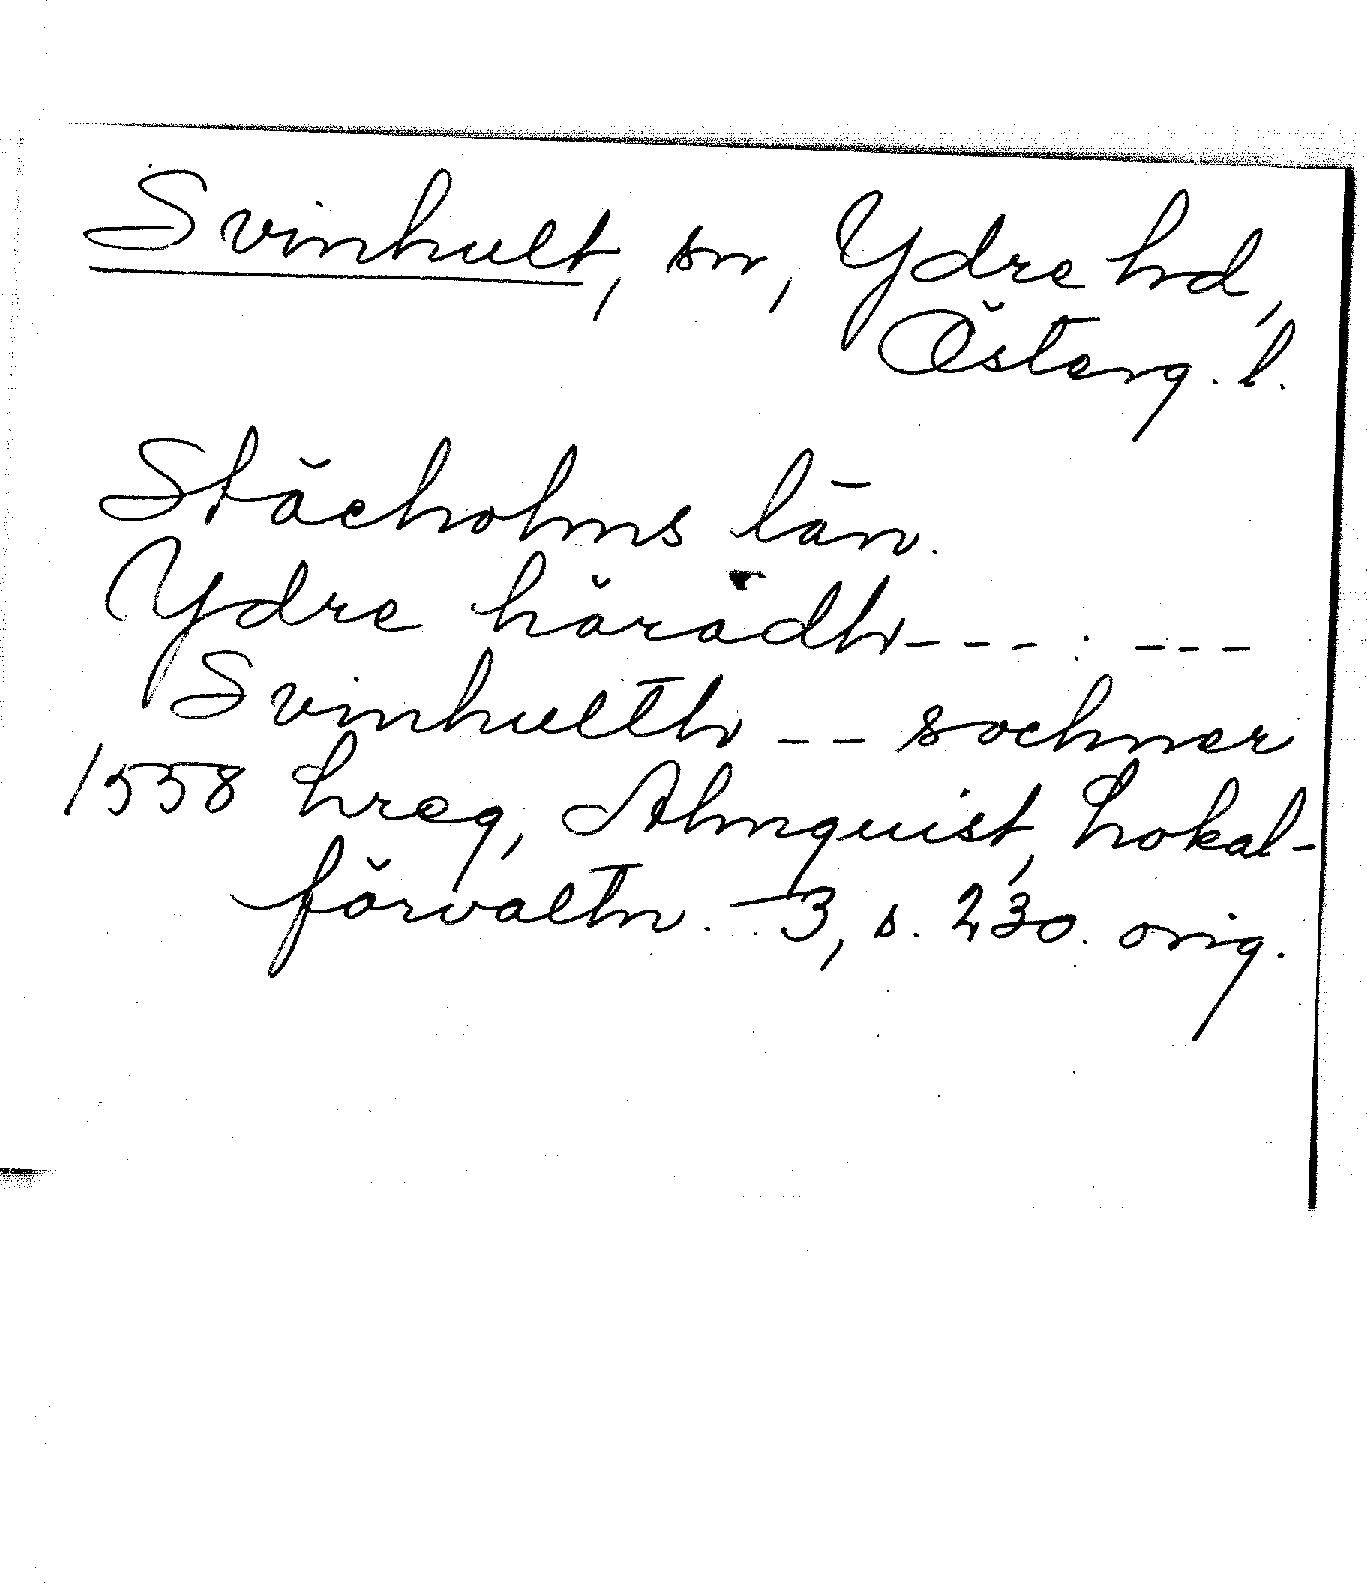 Svinhult, sn, Ydre hd,
Österg. l.
Stächolms län.
Ydre härädh --- : ---
Svinhullth -- sochner
1558 hreg, Almquist, Lokal-
förvaltn. 3, s. 230. orig.